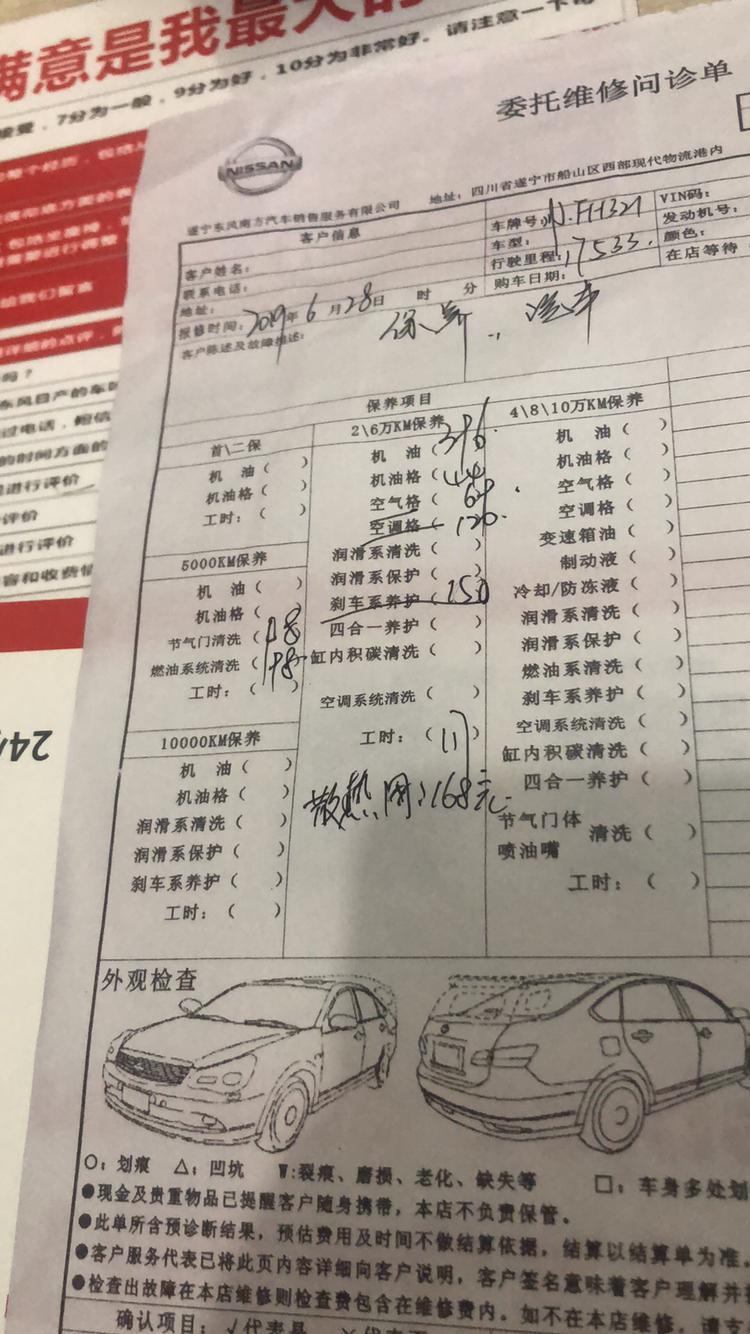 满意是我最大的
7分为一般，9分为好，10分为非常好。请注意一下
委托维修问诊单
NISSAN
遂宁东风南方汽车销售服务有限公司 地址：四川省遂宁市船山区西部现代物流港内
客户信息
车牌号
VIN码：
客户姓名：
车型：
发动机号：
联系电话：
行驶里程：17533
颜色：
地址：
购车日期：
在店等待
报修时间：2019年6月28日 时 分
客户陈述及故障描述：
保养项目
首\二保
机 油（ ）
机油格（ ）
工时：（ ）
5000KM保养
机 油（ ）
机油格（ ）
节气门清洗（
燃油系统清洗（
工时：（ ）
10000KM保养
机 油（ ）
机油格（ ）
润滑系清洗（ ）
润滑系保护（ ）
刹车系养护（ ）
工时：（ ）
2\6万KM保养
机 油（396
机油格（
空气格（
空调格（120
润滑系清洗（ ）
润滑系保护（ ）
刹车系养护（150
四合一养护（ ）
缸内积碳清洗（ ）
空调系统清洗（ ）
工时：（
散热网：168元
4\8\10万KM保养
机 油（ ）
机油格（ ）
空气格（ ）
空调格（ ）
变速箱油（ ）
制动液（ ）
冷却/防冻液（ ）
润滑系清洗（ ）
润滑系保护（ ）
燃油系清洗（ ）
刹车系养护（ ）
空调系统清洗（ ）
缸内积碳清洗（ ）
四合一养护（ ）
节气门体
喷油嘴 清洗（ ）
工时：（ ）
外观检查
○：划痕 △：凹坑 W：裂痕、磨损、老化、缺失等 □：车身多处划
●现金及贵重物品已提醒客户随身携带，本店不负责保管。
●此单所含预诊断结果，预估费用及时间不做结算依据，结算以结算单为准。
●客户服务代表已将此页内容详细向客户说明，客户签名意味着客户理解并
●检查出故障在本店维修则检查费包含在维修费内。如不在本店维修，请支
确认项目：